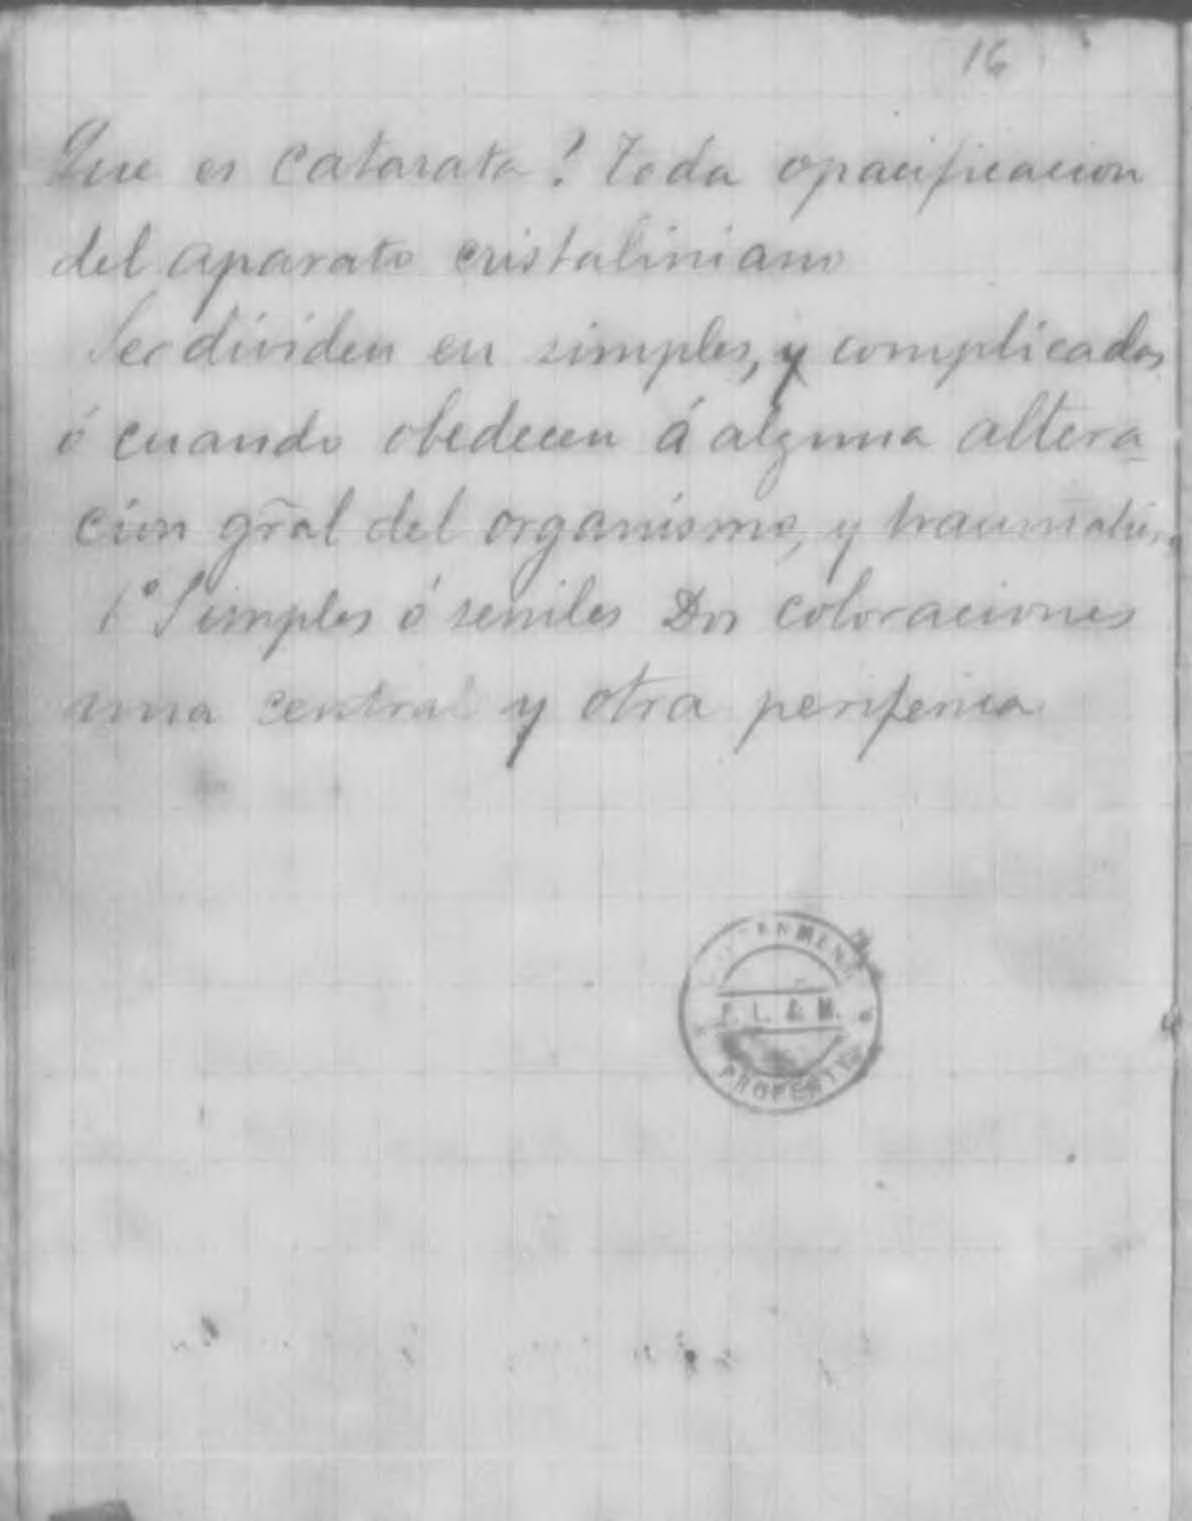 16
Que es catarata? Toda opacificacion
del aparato cristaliniano
Se dividen en simples, y complicadas
ó cuando obedecen á alguna altera
cion gr̃al del organismo, y traumatica
1º Simples ó seniles Dos coloraciones
una central y otra periferica
GOVERNMENT
P. L. & M.
PROPERTY